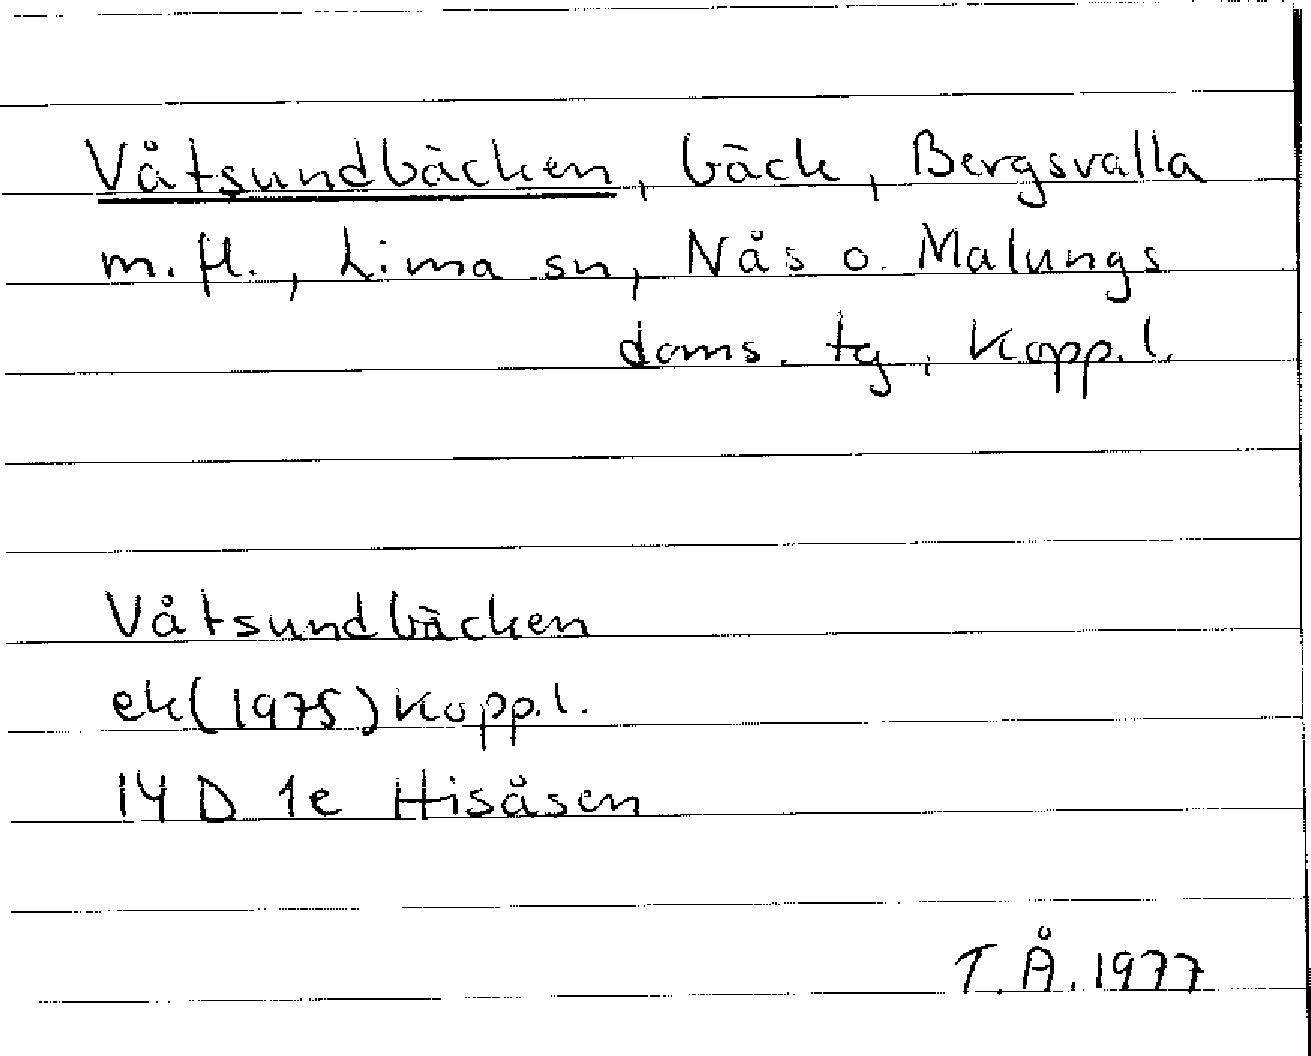 Våtsundbäcken, bäck, Bergsvalla
m. fl., Lima sn, Nås o. Malungs
doms. tg, Kopp. l.
Våtsundbäcken
ek (1975) Kopp. l.
14 D 1e Hisåsen
T. Å. 1977